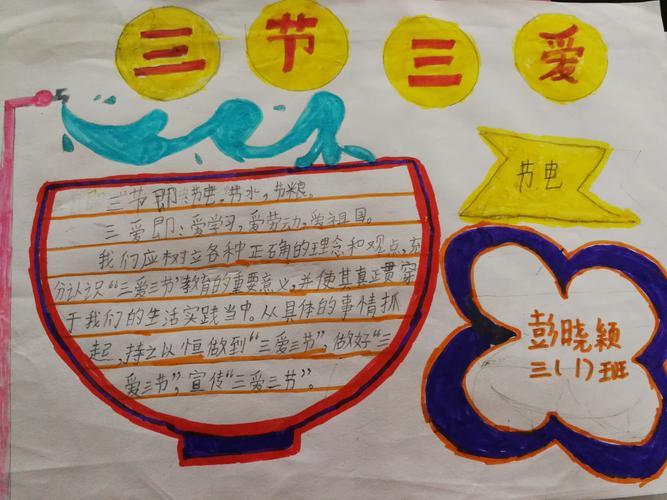 三节三爱
节电
三节即:节电、节水、节粮。
三爱即:爱学习,爱劳动,爱祖国。
我们应树立各种正确的理念和观点,充
分认识“三爱三节”教育的重要意义,并使其真正贯穿
于我们的生活实践当中。从具体的事情抓
起,持之以恒做到“三爱三节”,做好“三
爱三节”,宣传“三爱三节”。
彭晓颖
三(1)班